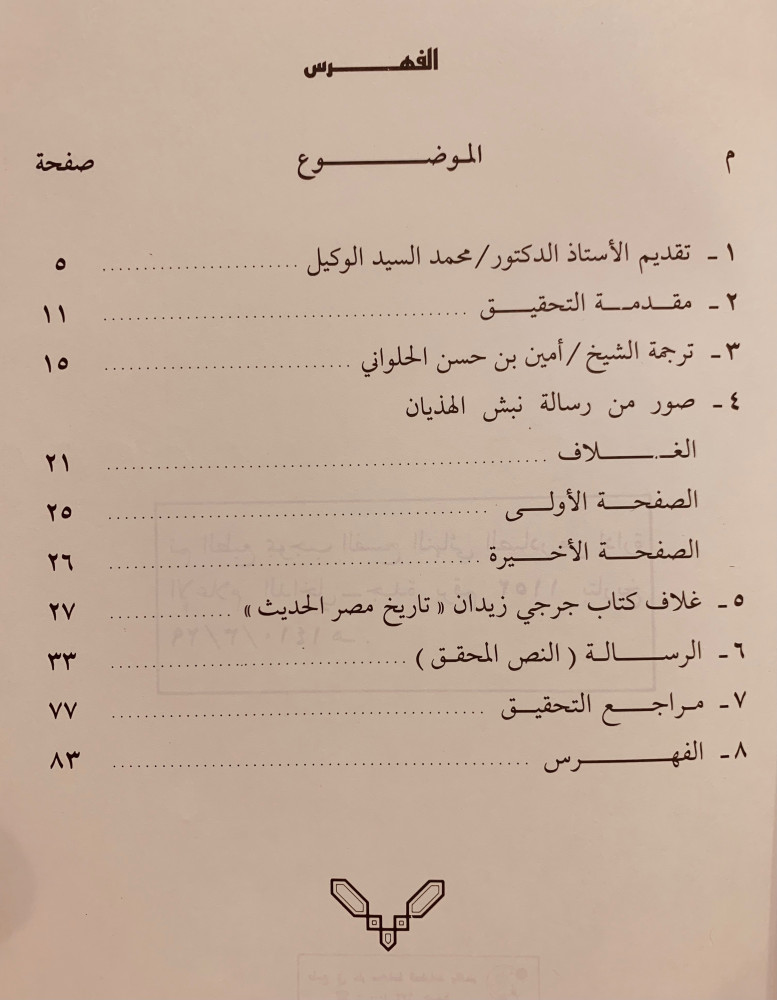 الفهرس
م الموضوع صفحة
١ ـ تقديم الأستاذ الدكتور/محمد السيد الوكيل .................... ٥
٢ ـ مقدمة التحقيق .................... ١١
٣ ـ ترجمة الشيخ/أمين بن حسن الحلواني .................... ١٥
٤ ـ صور من رسالة نبش الهذيان
الغلاف .................... ٢١
الصفحة الأولى .................... ٢٥
الصفحة الأخيرة .................... ٢٦
٥ ـ غلاف كتاب جرجي زيدان « تاريخ مصر الحديث » .................... ٢٧
٦ ـ الرسالة ( النص المحقق ) .................... ٣٣
٧ ـ مراجع التحقيق .................... ٧٧
٨ ـ الفهرس .................... ٨٣